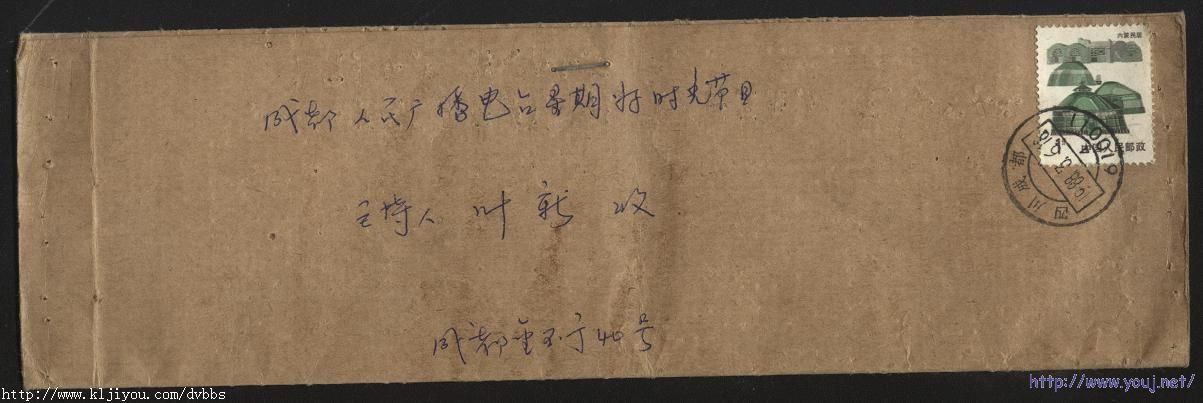 内蒙民居
中国人民邮政
四川成都
成都人民广播电台星期好时光节目
主持人 叶新 收
成都
40号
http://www.kljiyou.com/dvbbs
http://www.youj.net/